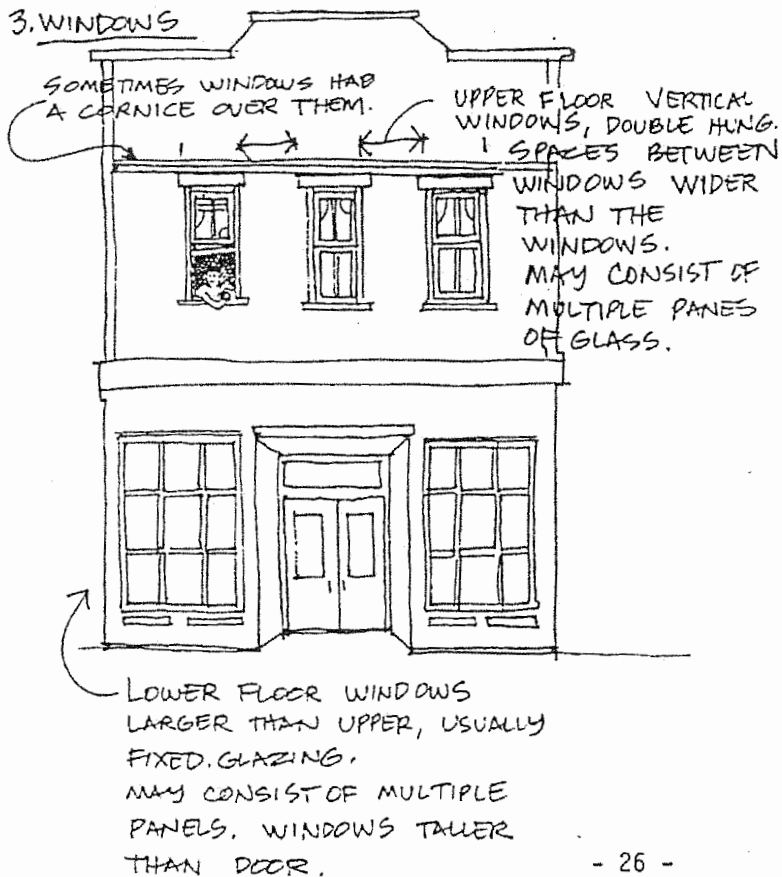 3. WINDOWS
SOMETIMES WINDOWS HAD
A CORNICE OVER THEM.
UPPER FLOOR VERTICAL
WINDOWS, DOUBLE HUNG.
SPACES BETWEEN
WINDOWS WIDER
THAN THE
WINDOWS.
MAY CONSIST OF
MULTIPLE PANES
OF GLASS.
LOWER FLOOR WINDOWS
LARGER THAN UPPER, USUALLY
FIXED.GLAZING.
MAY CONSIST OF MULTIPLE
PANELS. WINDOWS TALLER
THAN DOOR.
- 26 -